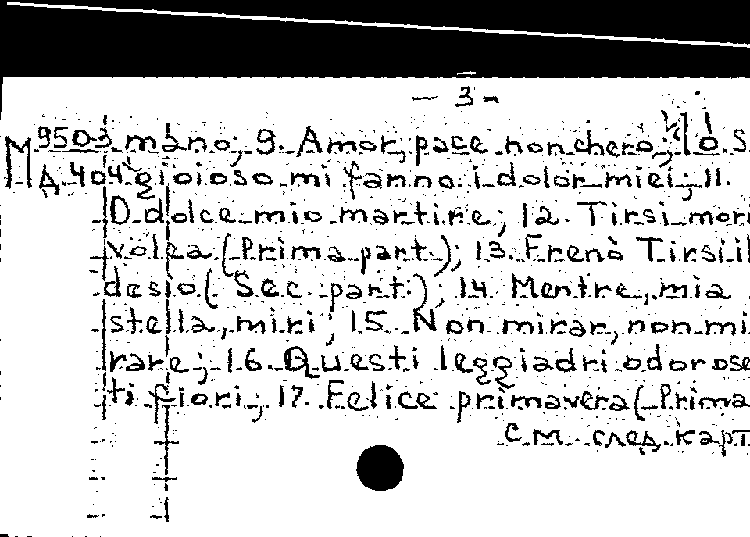 - 3 -
М 9503 mano; 9. Amor, pace non chero; 10. S
Д 404 gioioso mi fanno i dolor miei; 11.
O dolce mio martire; 12. Tirsi mori
volea (Prima part.); 13. Frenò Tirsi il
desio (Sec. part.); 14. Mentre, mia
stella, miri; 15. Non mirar, non mi
rare; 16. Questi leggiadri odorose
ti fiori; 17. Felice primavera (Prima
см. след. карт